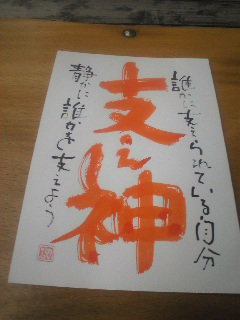 誰かに支えられている自分
支え神
静かに誰かを支えよう